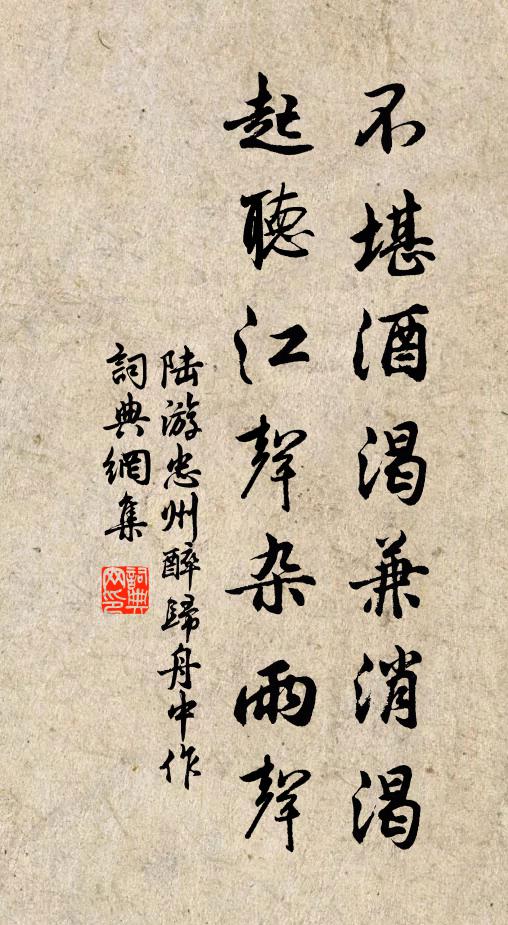 不堪酒渴兼消渴
起聽江聲杂雨聲
陆游忠州醉歸舟中作
詞典網集
詞典网印